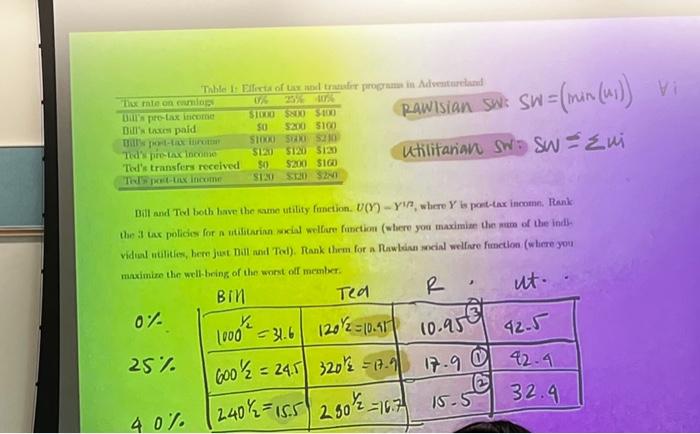 Table 1: Effects of tax and transfer programs in Adventureland
Tax rate on earnings 0% 25% 40%
Bill's pre-tax income $1000 $800 $400
Bill's taxes paid $0 $200 $160
Bill's post-tax income $1000 $600 $240
Ted's pre-tax income $120 $120 $120
Ted's transfers received $0 $200 $160
Ted's post-tax income $120 $320 $280
RAWlSian SW: SW=(min(u1)) ∀i
Utilitarian SW: SW = Σui
Bill and Ted both have the same utility function. U(Y) = Y^1/2, where Y is post-tax income. Rank
the 3 tax policies for a utilitarian social welfare function (where you maximize the sum of the indi-
vidual utilities, here just Bill and Ted). Rank them for a Rawlsian social welfare function (where you
maximize the well-being of the worst off member.
Bill Ted R. Ut.
0% 1000^1/2 = 31.6 120^1/2 = 10.95 10.95 ③ 42.5
25% 600^1/2 = 24.5 320^1/2 = 17.9 17.9 ① 42.4
40% 240^1/2 = 15.5 280^1/2 = 16.7 15.5 ② 32.4